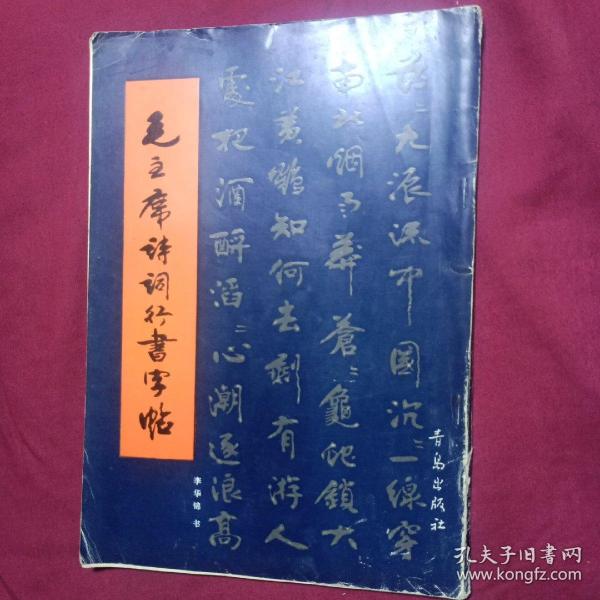 茫〻九派流中國沉〻一線穿
南北烟雨莽蒼〻龜蛇鎖大
江黃鶴知何去剩有游人
處把酒酹滔〻心潮逐浪高
毛主席诗词行書字帖
李华锦 书
青岛出版社
孔夫子旧书网
www.kongfz.com